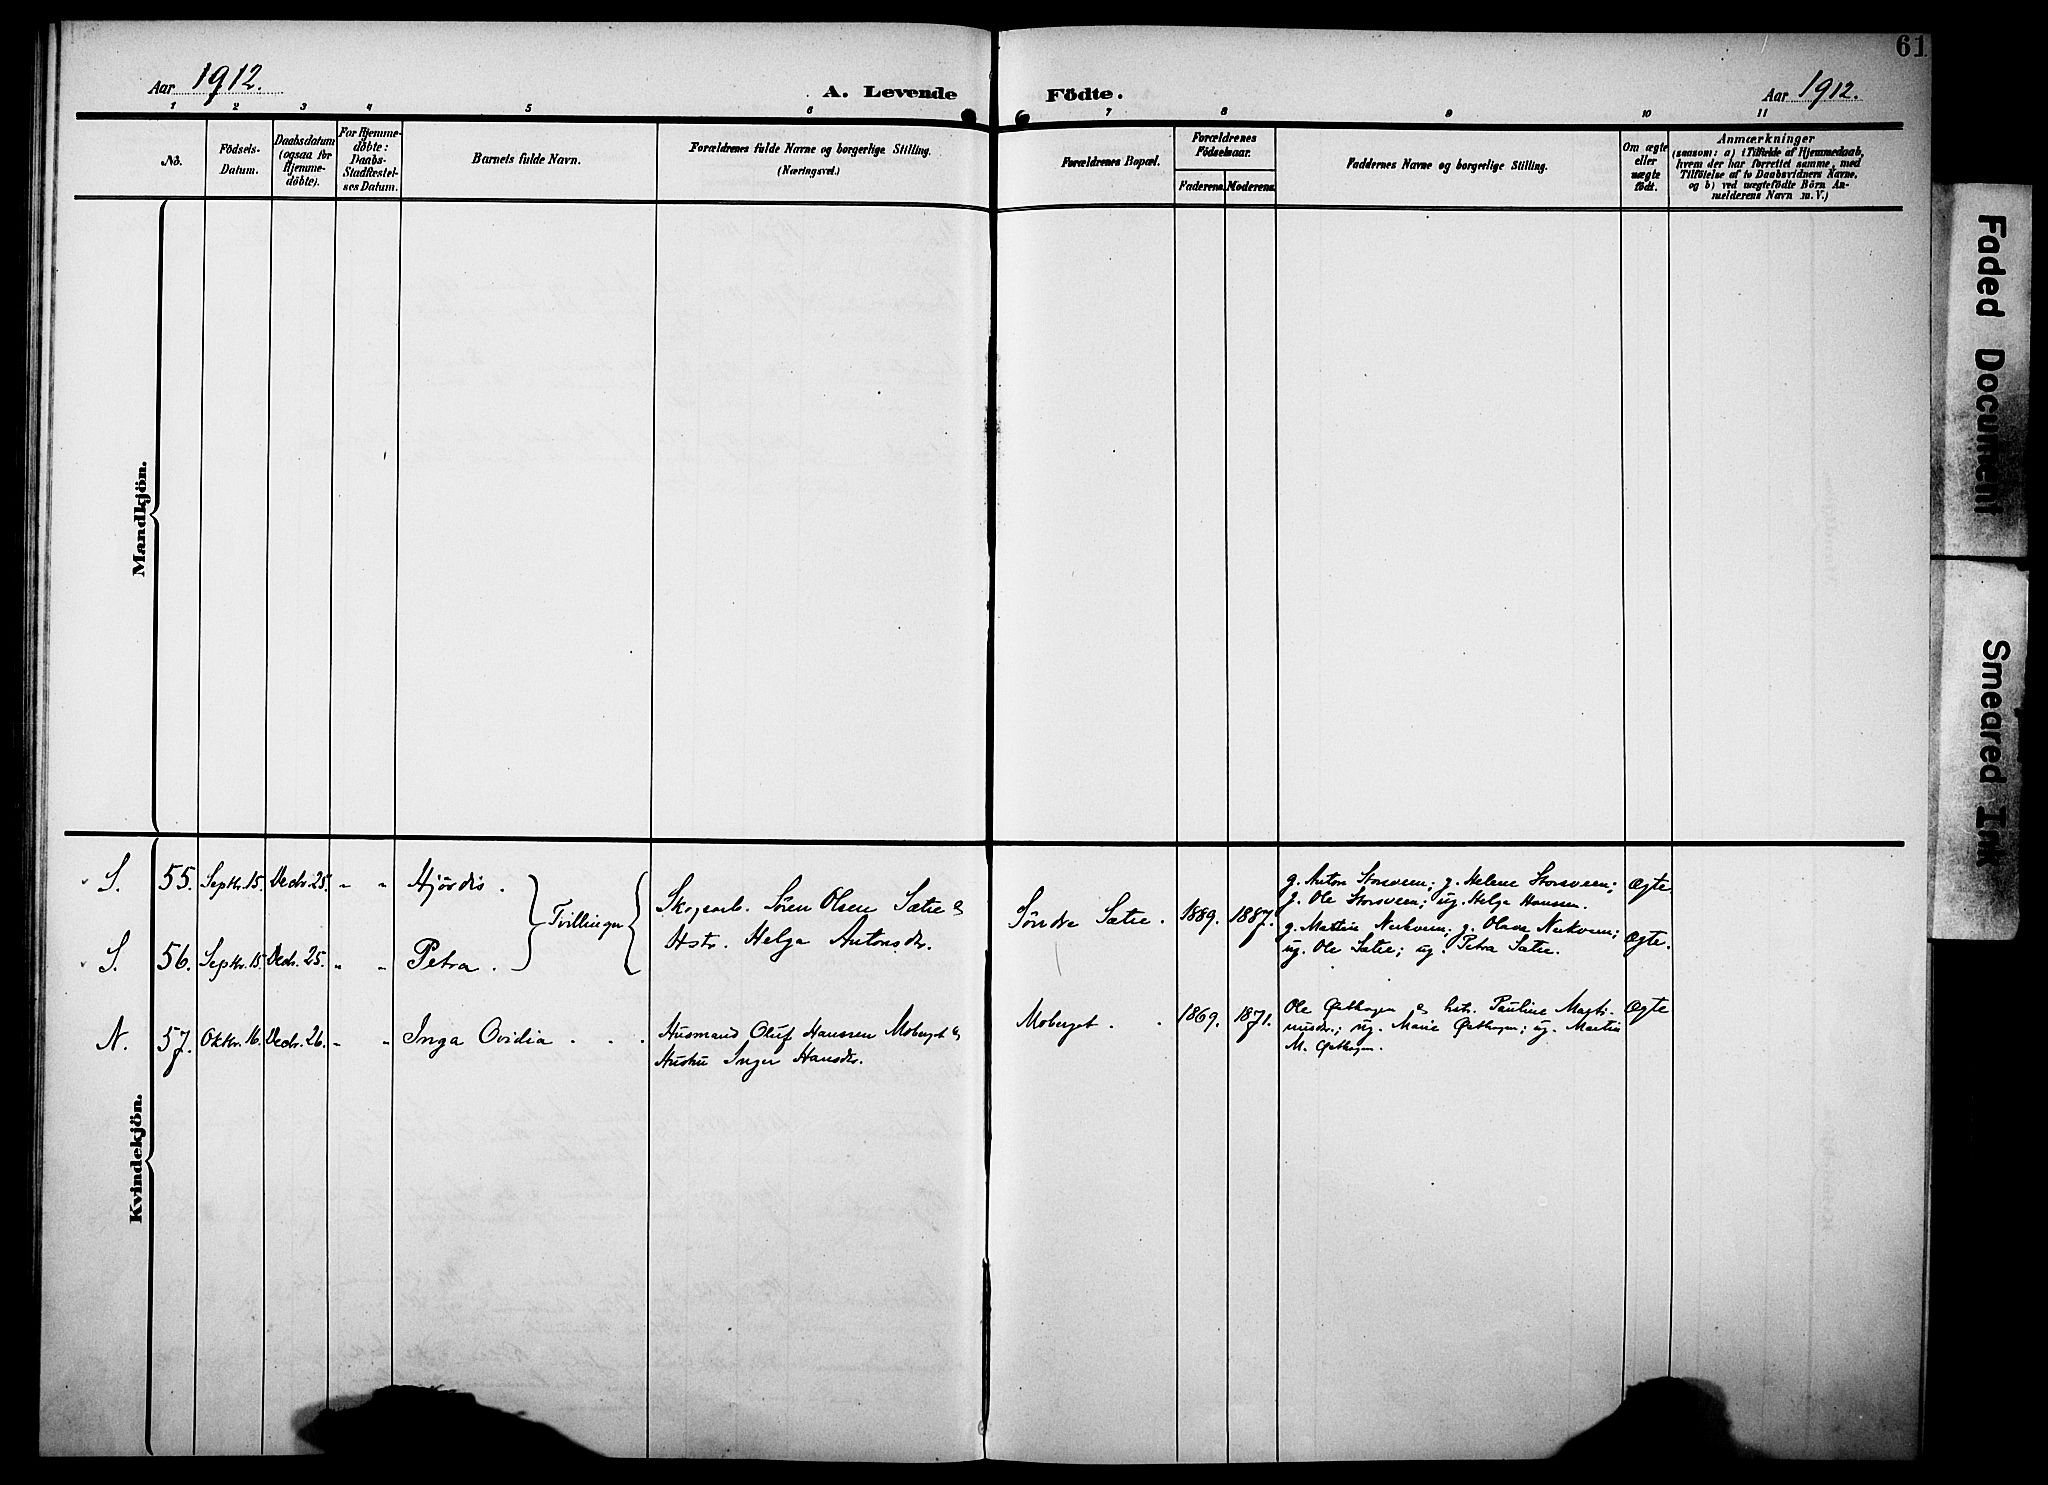 61
Aar 1912.
A. Levende Födte.
Aar 1912.
1 2 3 4 5 6 7 8 9 10 11
No.
Födsels-
Datum.
Daabsdatum
(ogsaa for
Hjemme-
döbte).
For Hjemme-
döbte:
Daabs-
Stadfæstel-
ses Datum.
Barnets fulde Navn.
Forældrenes fulde Navne og borgerlige Stilling.
(Næringsvei.)
Forældrenes Bopæl.
Forældrenes
Födselsaar.
Faderens. Moderens.
Faddernes Navne og borgerlige Stilling.
Om ægte
eller
uægte
födt.
Anmærkninger
(saasom: a) i Tilfælde af Hjemmedaab,
hvem der har forrettet samme, med
Tilföielse af to Daabsvidners Navne,
og b) ved uægtefödte Börn An-
melderens Navn m. V.)
Mandkjön.
Kvindekjön.
S. 55. Septbr. 15. Decbr. 25. " " Hjördis.
Tvillinger
Skogsarb. Sören Olsen Sætre &
Hstr. Helga Antonsdr.
Söndre Sætre. 1889. 1887.
g. Anton Storsveen; g. Helene Storsveen;
g. Ole Storsveen; ug. Helga Hanssen.
Ægte
S. 56. Septbr. 15. Decbr. 25. " " Petra.
ug. Ole Sætre; ug. Petra Sætre.
Ægte.
N. 57. Oktbr. 16. Decbr. 26. " " Inga Ovidia . . .
Husmand Oluf Hanssen Moberget &
Hustru Inger Hansdr.
Moberget . . 1869. 1871.
Ægte
Faded Document
Smeared Ink